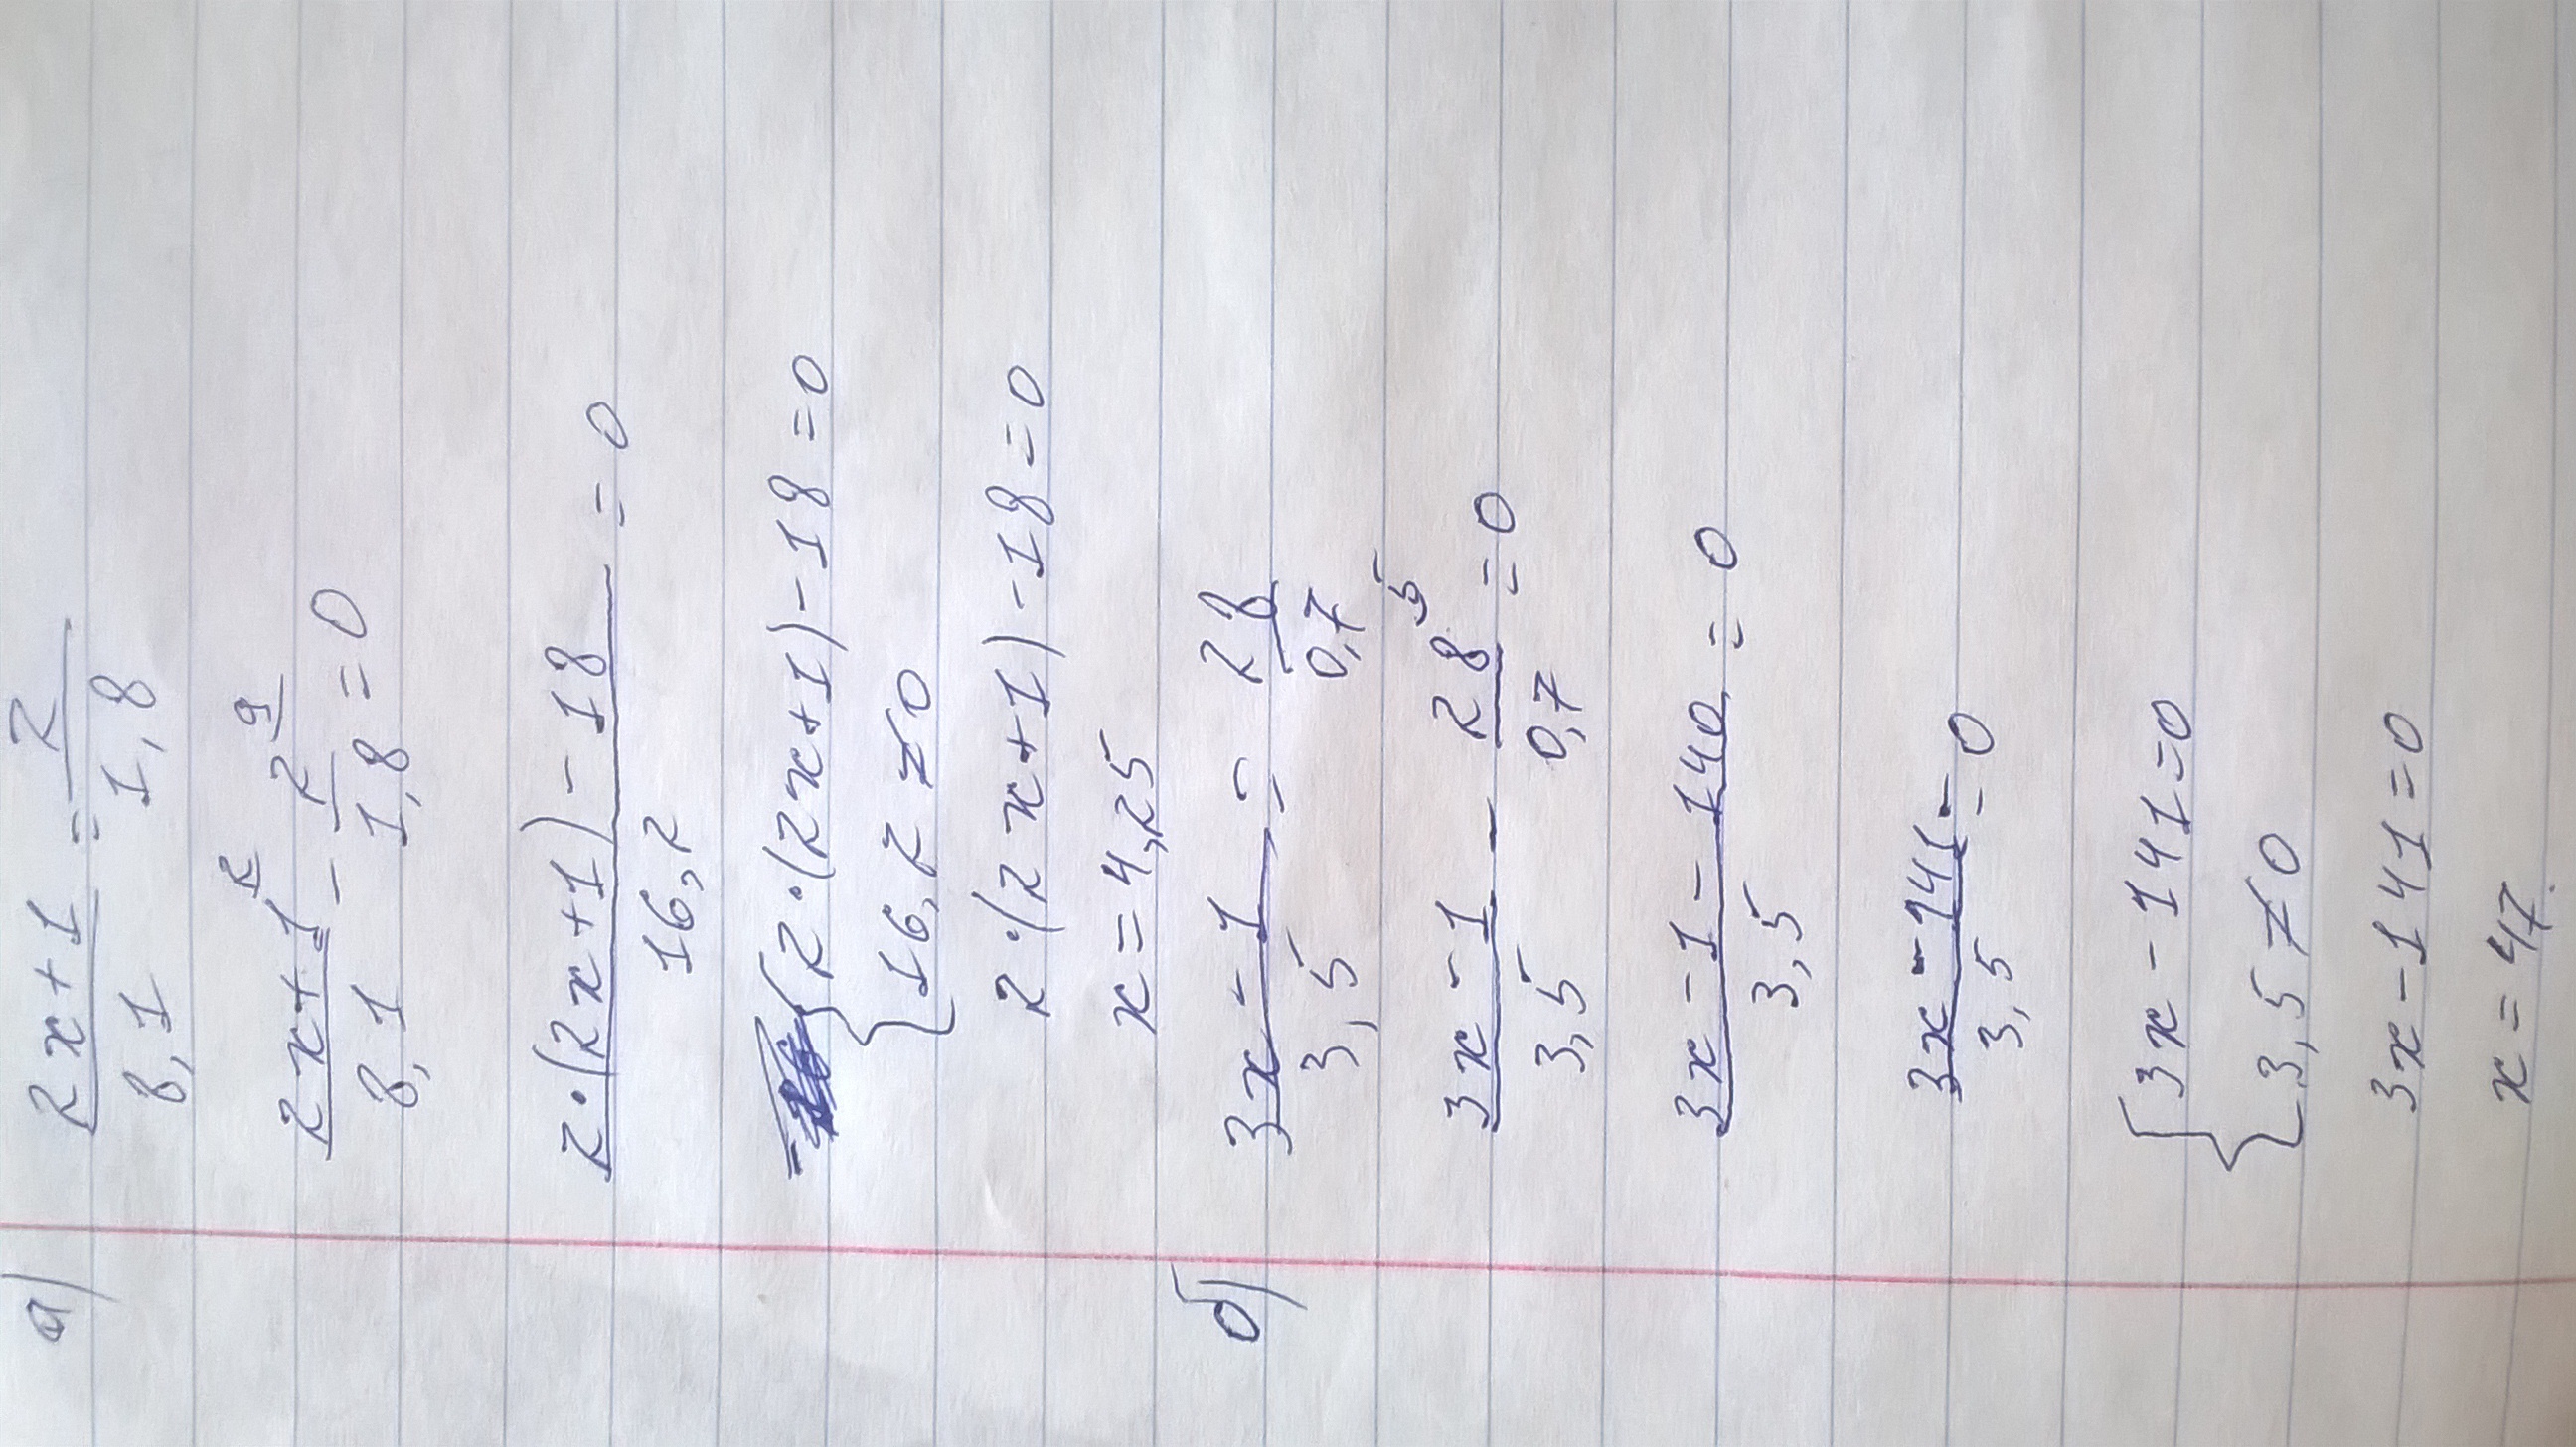 а) (2x+1)/8,1 = 2/1,8
(2x+1)/8,1 ² - 2/1,8 ⁹ = 0
(2·(2x+1)-18)/16,2 = 0
{2·(2x+1)-18=0
{16,2≠0
2·(2x+1)-18=0
x=4,25
б) (3x-1)/3,5 = 28/0,7
(3x-1)/3,5 - 28/0,7 ⁵ = 0
(3x-1-140)/3,5 = 0
(3x-141)/3,5 = 0
{3x-141=0
{3,5≠0
3x-141=0
x=47.